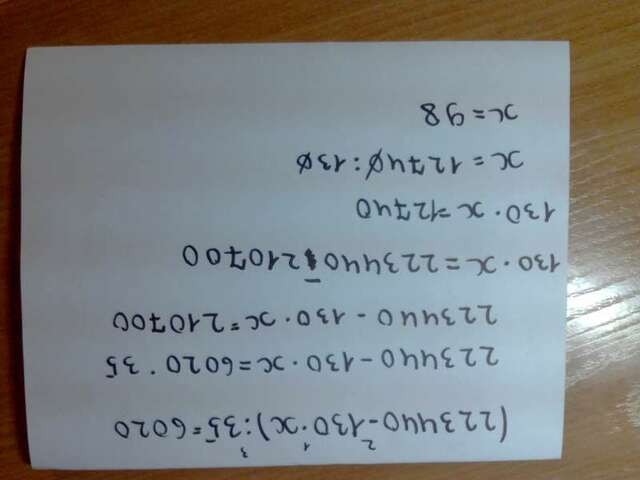 (223440-130·x):35=6020
2 1 3
223440-130·x=6020·35
223440-130·x=210700
130·x=223440-210700
130·x=12740
x=12740:130
x=98